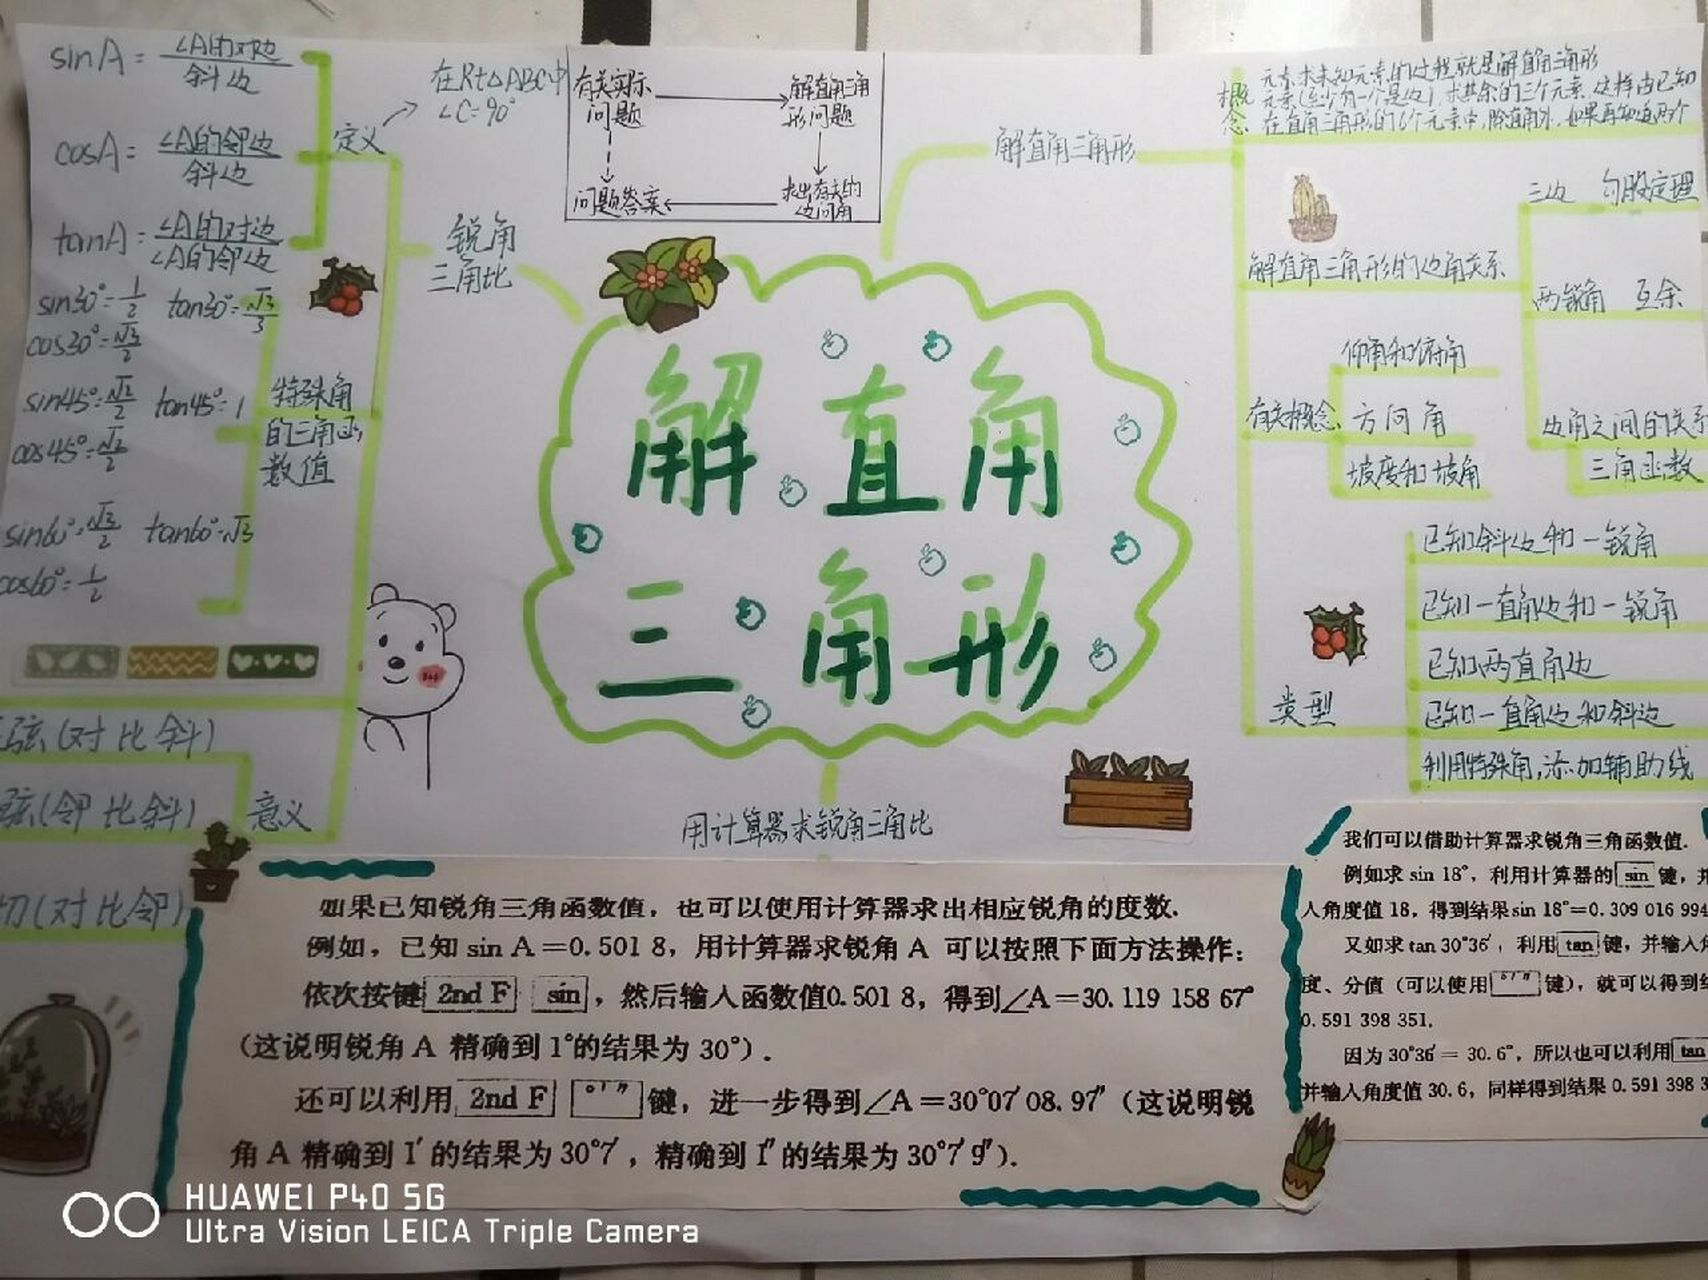 sinA = ∠A的对边/斜边
cosA = ∠A的邻边/斜边
tanA = ∠A的对边/∠A的邻边
定义
在Rt△ABC中
∠C=90°
锐角
三角比
sin30°=1/2 tan30°=√3/3
cos30°=√3/2
sin45°=√2/2 tan45°=1
cos45°=√2/2
sin60°=√3/2 tan60°=√3
cos60°=1/2
特殊角
的三角函
数值
弦(对比斜)
弦(邻比斜)
切(对比邻)
意义
有关实际
问题
解直角三角
形问题
问题答案
求出有关的
边问角
解直角
三角形
解直角三角形
概
念
元素求未知元素的过程就是解直角三角形
元素(至少有一个是边),求其余的三个元素.这样由已知
在直角三角形的6个元素中,除直角外,如果再知道两个
解直角三角形的边角关系
三边 勾股定理
两锐角 互余
边角之间的关系
三角函数
有关概念
仰角和俯角
方向角
坡度和坡角
类型
已知斜边和一锐角
已知一直角边和一锐角
已知两直角边
已知一直角边和斜边
利用特殊角,添加辅助线
用计算器求锐角三角比
如果已知锐角三角函数值，也可以使用计算器求出相应锐角的度数.
例如，已知 sin A＝0.501 8，用计算器求锐角 A 可以按照下面方法操作：
依次按键 2nd F sin，然后输入函数值0.501 8，得到∠A＝30.119 158 67°
(这说明锐角 A 精确到 1°的结果为 30°).
还可以利用 2nd F °′″ 键，进一步得到∠A＝30°07′08.97″ (这说明锐
角 A 精确到 1′ 的结果为 30°7′，精确到 1″ 的结果为 30°7′9″).
我们可以借助计算器求锐角三角函数值.
例如求 sin 18°，利用计算器的 sin 键，并
入角度值 18，得到结果 sin 18°=0.309 016 994
又如求 tan 30°36′，利用 tan 键，并输入角
度、分值 (可以使用 °′″ 键)，就可以得到结
0.591 398 351.
因为 30°36′ = 30.6°，所以也可以利用 tan
并输入角度值 30.6，同样得到结果 0.591 398 3
HUAWEI P40 5G
Ultra Vision LEICA Triple Camera